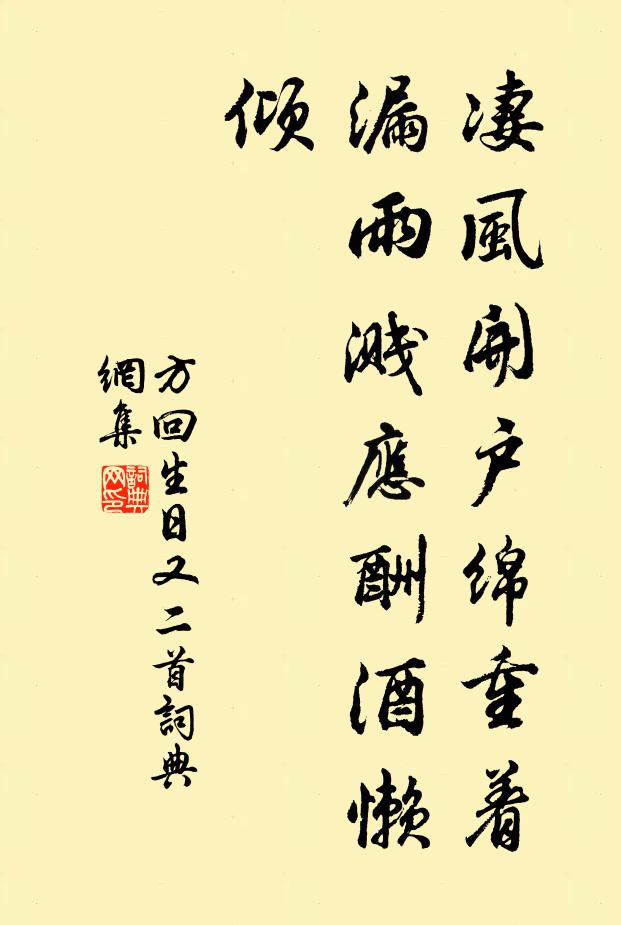 凄風開户綿重着
漏雨濺應酬酒懒
倾
方回生日又二首詞典
網集
詞典
网印